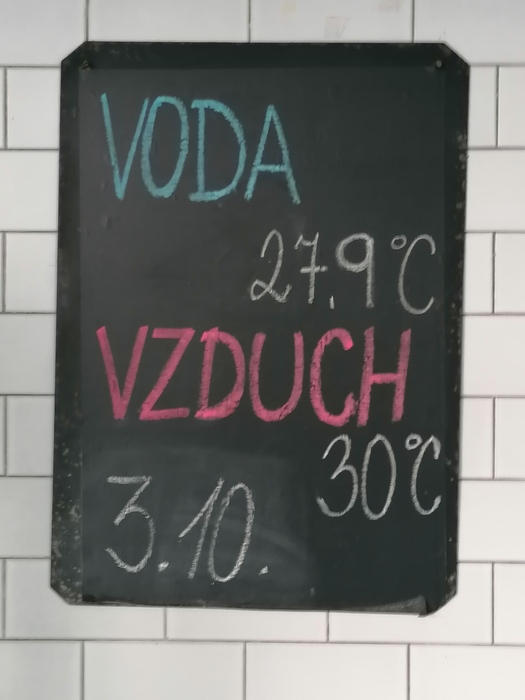 VODA
27,9°C
VZDUCH
30°C
3.10.